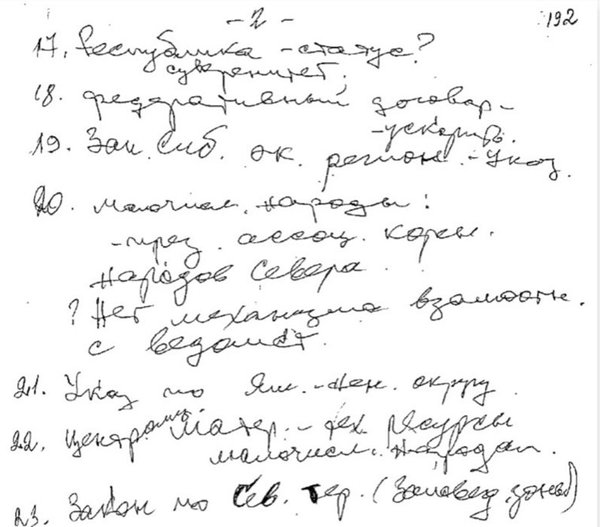 - 2 -
192
17. Республика - статус?
суверенитет,
18. федеративный договор -
- ускорить.
19. Зап. Сиб. эк. регион. - Указ.
20. малочисл. народы:
- през. ассоц. корен.
народов Севера.
? Нет механизма взаимоотн.
с ведомст.
21. Указ по Ям. - Нен. округу
22. Центр матер. - тех ресурсы
малочисл. народам.
23. Закон по Сев. тер. (Заповед. зоны)